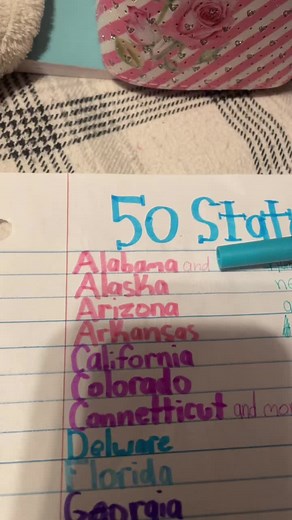 50 Stat
Alabama and
Alaska
Arizona
Arkansas
California
Colorado
Connetticut and mor
Delware
Florida
Georgia